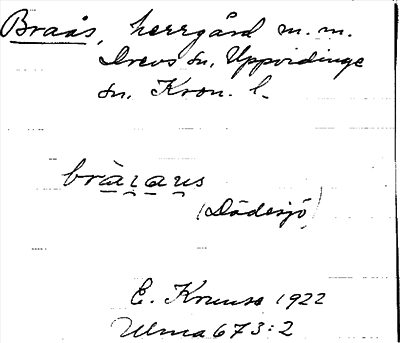 Braås, herrgård m. m.
Drevs sn, Uppvidinge
sn, Kron. l.
bràɿaus
(Dädesjö)
E. Kruuse 1922
Ulma 673:2